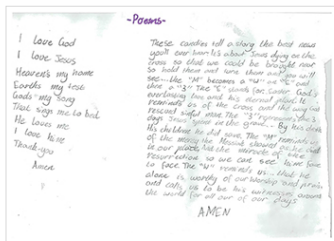 ~Poems~
I love God
I love Jesus
Heaven's my home
Earths my test
Gods my song
That sign me to bed
He loves me
I love him
Thankyou
Amen
These candies tell a story the best news
you'll ever hear it's about Jesus dying on the
cross so that we could be brought near
So hold them and turn them and you will
see... the "M" becomes a "W" an "E" and
then a "3" The "E" stands for Easter God's
everlasting love and his eternal place. It
reminds us of the cross and the way God
rescued sinful race. The "3" represents the 3
days Jesus spent in the grave. By his death
His children he did save. The "M" reminds us
of the mercy the Messiah showed as he died
in our place, and the miracle of the
resurrection so we can see him face
to face. The "W" reminds us that he
alone is worthy of our worship and praise
and calls us to be his witnesses around
the world for all our of our days
AMEN